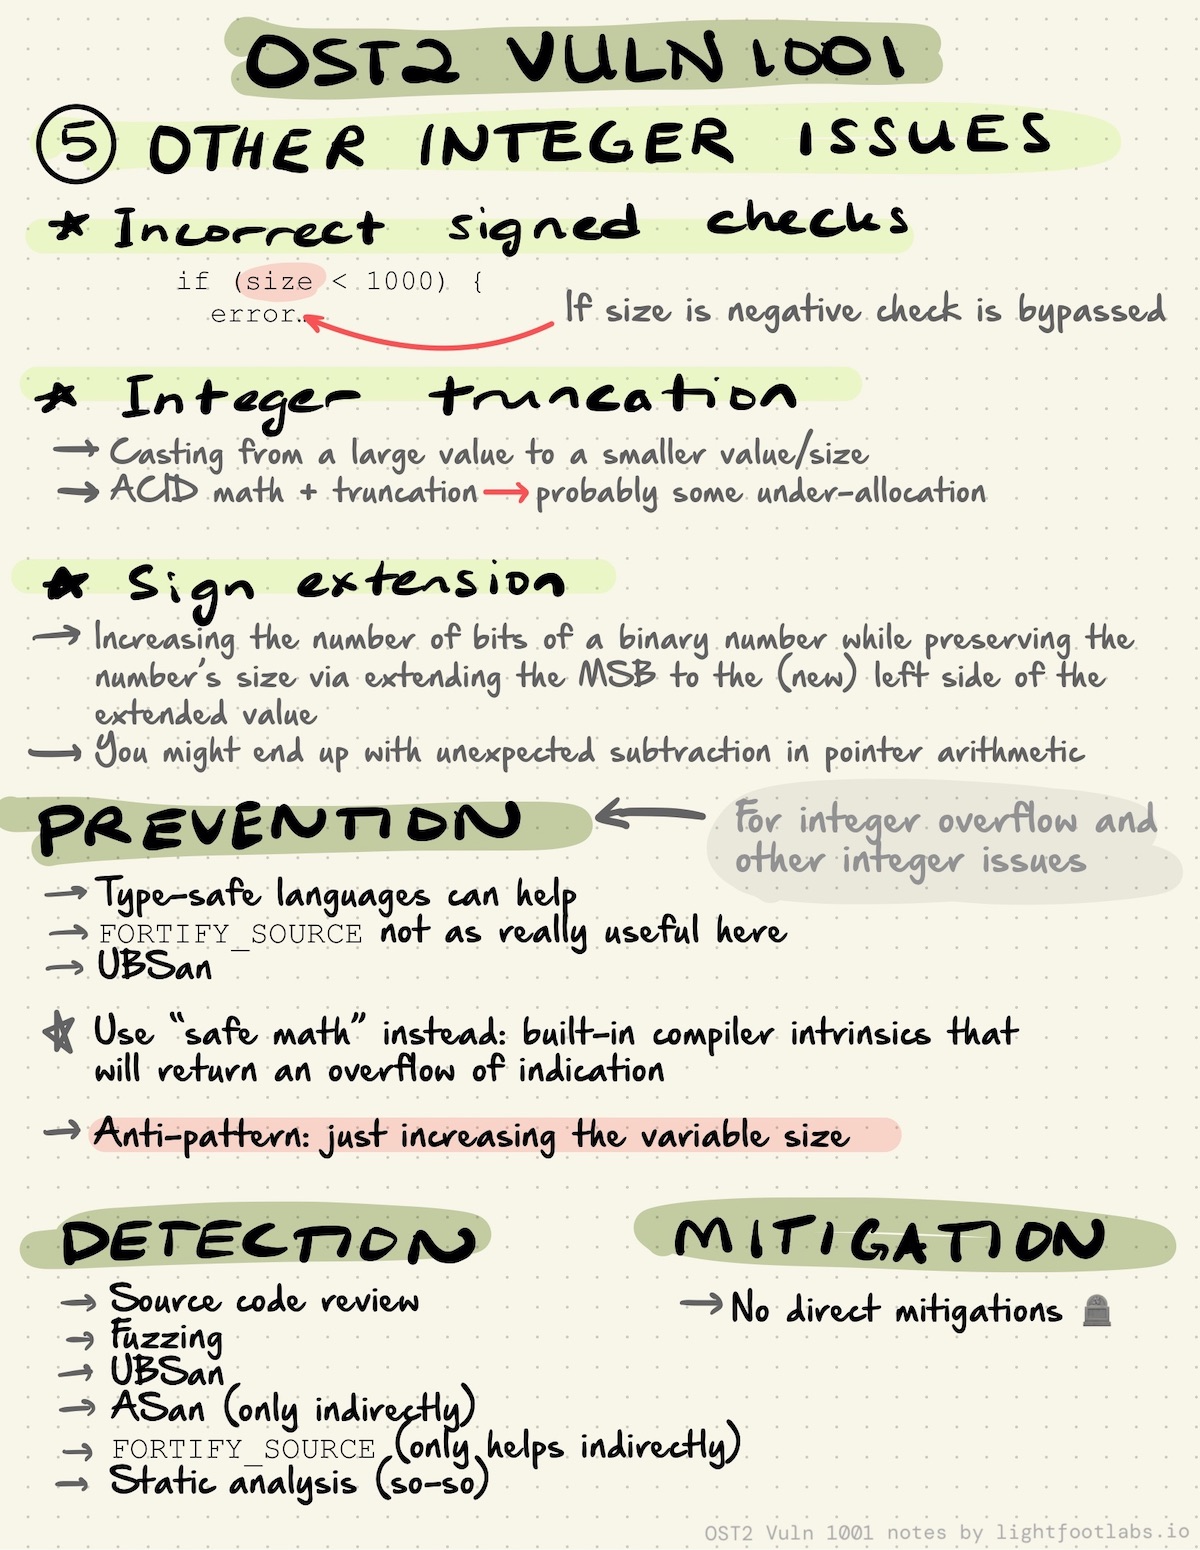 OST2 VULN 1001
5 OTHER INTEGER ISSUES
★ Incorrect signed checks
if (size < 1000) {
error…
If size is negative check is bypassed
★ Integer truncation
→ Casting from a large value to a smaller value/size
→ ACID math + truncation → probably some under-allocation
★ Sign extension
→ Increasing the number of bits of a binary number while preserving the
number's size via extending the MSB to the (new) left side of the
extended value
→ You might end up with unexpected subtraction in pointer arithmetic
PREVENTION
For integer overflow and
other integer issues
→ Type-safe languages can help
→ FORTIFY_SOURCE not as really useful here
→ UBSan
★ Use “safe math” instead: built-in compiler intrinsics that
will return an overflow of indication
→ Anti-pattern: just increasing the variable size
DETECTION
→ Source code review
→ Fuzzing
→ UBSan
→ ASan (only indirectly)
→ FORTIFY_SOURCE (only helps indirectly)
→ Static analysis (so-so)
MITIGATION
→ No direct mitigations
OST2 Vuln 1001 notes by lightfootlabs.io